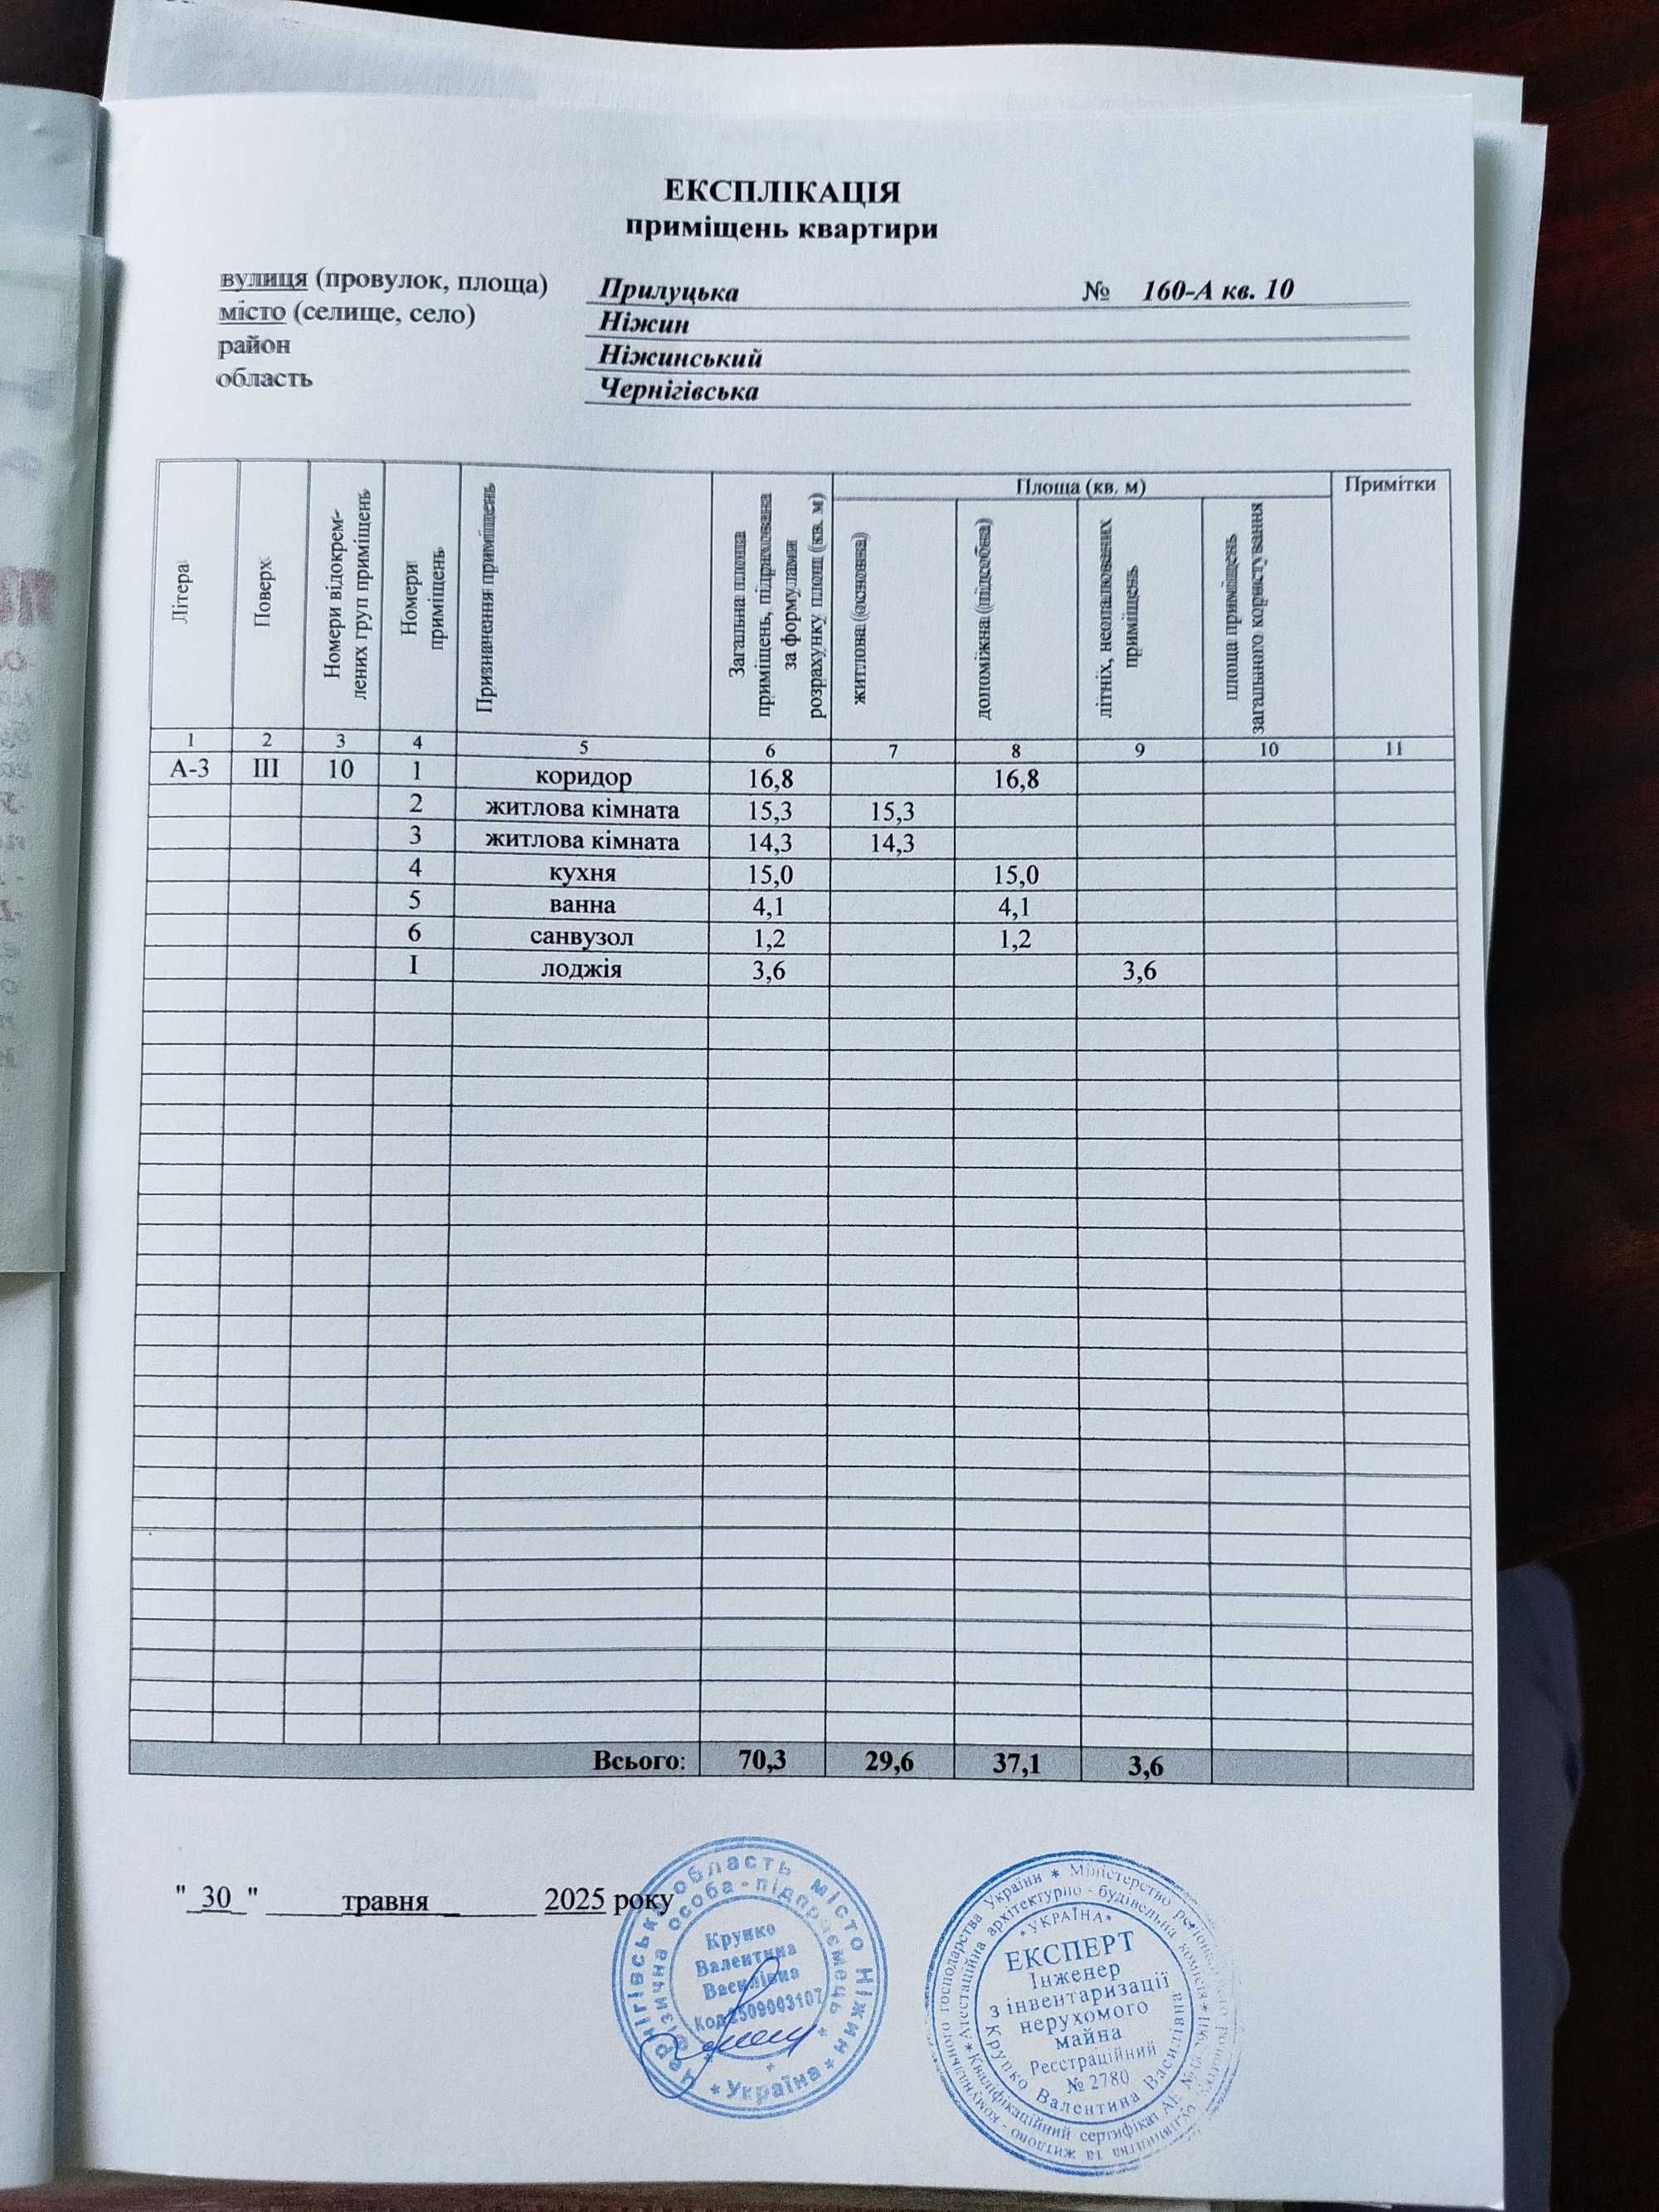 ЕКСПЛІКАЦІЯ
приміщень квартири
вулиця (провулок, площа) Прилуцька № 160-А кв. 10
місто (селище, село) Ніжин
район Ніжинський
область Чернігівська
Літера
Поверх
Номери відокрем-
лених груп приміщень
Номери
приміщень
Призначення приміщень
Загальна площа
приміщень, підрахована
за формулами
розрахунку площ (кв. м)
Площа (кв. м)
житлова (основна)
допоміжна (підсобна)
літніх, неопалюваних
приміщень
площа приміщень
загального користування
Примітки
1 2 3 4 5 6 7 8 9 10 11
А-3 III 10 1 коридор 16,8 16,8
2 житлова кімната 15,3 15,3
3 житлова кімната 14,3 14,3
4 кухня 15,0 15,0
5 ванна 4,1 4,1
6 санвузол 1,2 1,2
I лоджія 3,6 3,6
Всього: 70,3 29,6 37,1 3,6
" 30 " травня 2025 року
Чернігівська область місто Ніжин * Україна *
Фізична особа-підприємець *
Крупко
Валентина
Василівна
Код 2509003107
* Міністерство
господарства України
* Атестаційна архітектурно - будівельна комісія *
* УКРАЇНА *
ЕКСПЕРТ
Інженер
з інвентаризації
нерухомого
майна
Реєстраційний
№ 2780
Крупко Валентина Василівна
* Кваліфікаційний сертифікат АЕ №